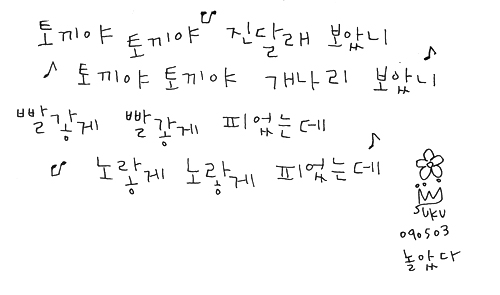 토끼야 토끼야 진달래 보았니
토끼야 토끼야 개나리 보았니
빨갛게 빨갛게 피었는데
노랗게 노랗게 피었는데
SUKU
090503
놀았다